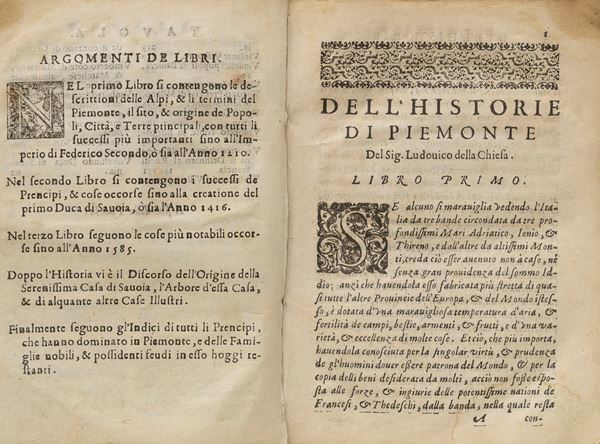 ARGOMENTI DE LIBRI.
NEL primo Libro si contengono le de-
scrittioni delle Alpi, & li termini del
Piemonte, il sito, & origine de Popo-
li, Città, e Terre principali, con tutti li
successi più importanti sino all'Im-
perio di Federico Secondo, ò sia all'Anno 1210.
Nel secondo Libro si contengono i successi de
Prencipi, & cose occorse sino alla creatione del
primo Duca di Sauoia, ò sia l'Anno 1416.
Nel terzo Libro seguono le cose più notabili occor-
se sino all'Anno 1585.
Doppo l'Historia vi è il Discorso dell'Origine della
Serenissima Casa di Sauoia, l'Arbore d'essa Casa,
& di alquante altre Case Illustri.
Finalmente seguono gl'Indici di tutti li Prencipi,
che hanno dominato in Piemonte, e delle Fami-
glie nobili, & possidenti feudi in esso hoggi re-
stanti.
1
DELL'HISTORIE
DI PIEMONTE
Del Sig. Ludouico della Chiesa.
LIBRO PRIMO.
SE alcuno si marauiglia vedendo l'Ita-
lia da tre bande circondata da tre pro-
fondissimi Mari Adriatico, Ionio, &
Thireno, e dall'altre da altissimi Mon-
ti, creda ciò esser auenuto non à caso, nè
senza gran prouidenza del sommo Id-
dio; anzi che hauendola esso fabricata più stretta di qua-
si tutte l'altre Prouincie dell'Europa, & del Mondo istes-
so, è dotata d'vna marauigliosa temperatura d'aria, &
fertilità de campi, bestie, armenti, & frutti, e d'vna va-
rietà, & eccellenza di molte cose. Et ciò, che più importa,
hauendola conosciuta per la singolar virtù, & prudenza
de gl'huomini douer essere patrona del Mondo, & per la
copia delli beni desiderata da molti, acciò non fosse espo-
sta alle forze, & ingiurie delle potentissime nationi de
Francesi, & Thedeschi, dalla banda, nella quale resta
A con-